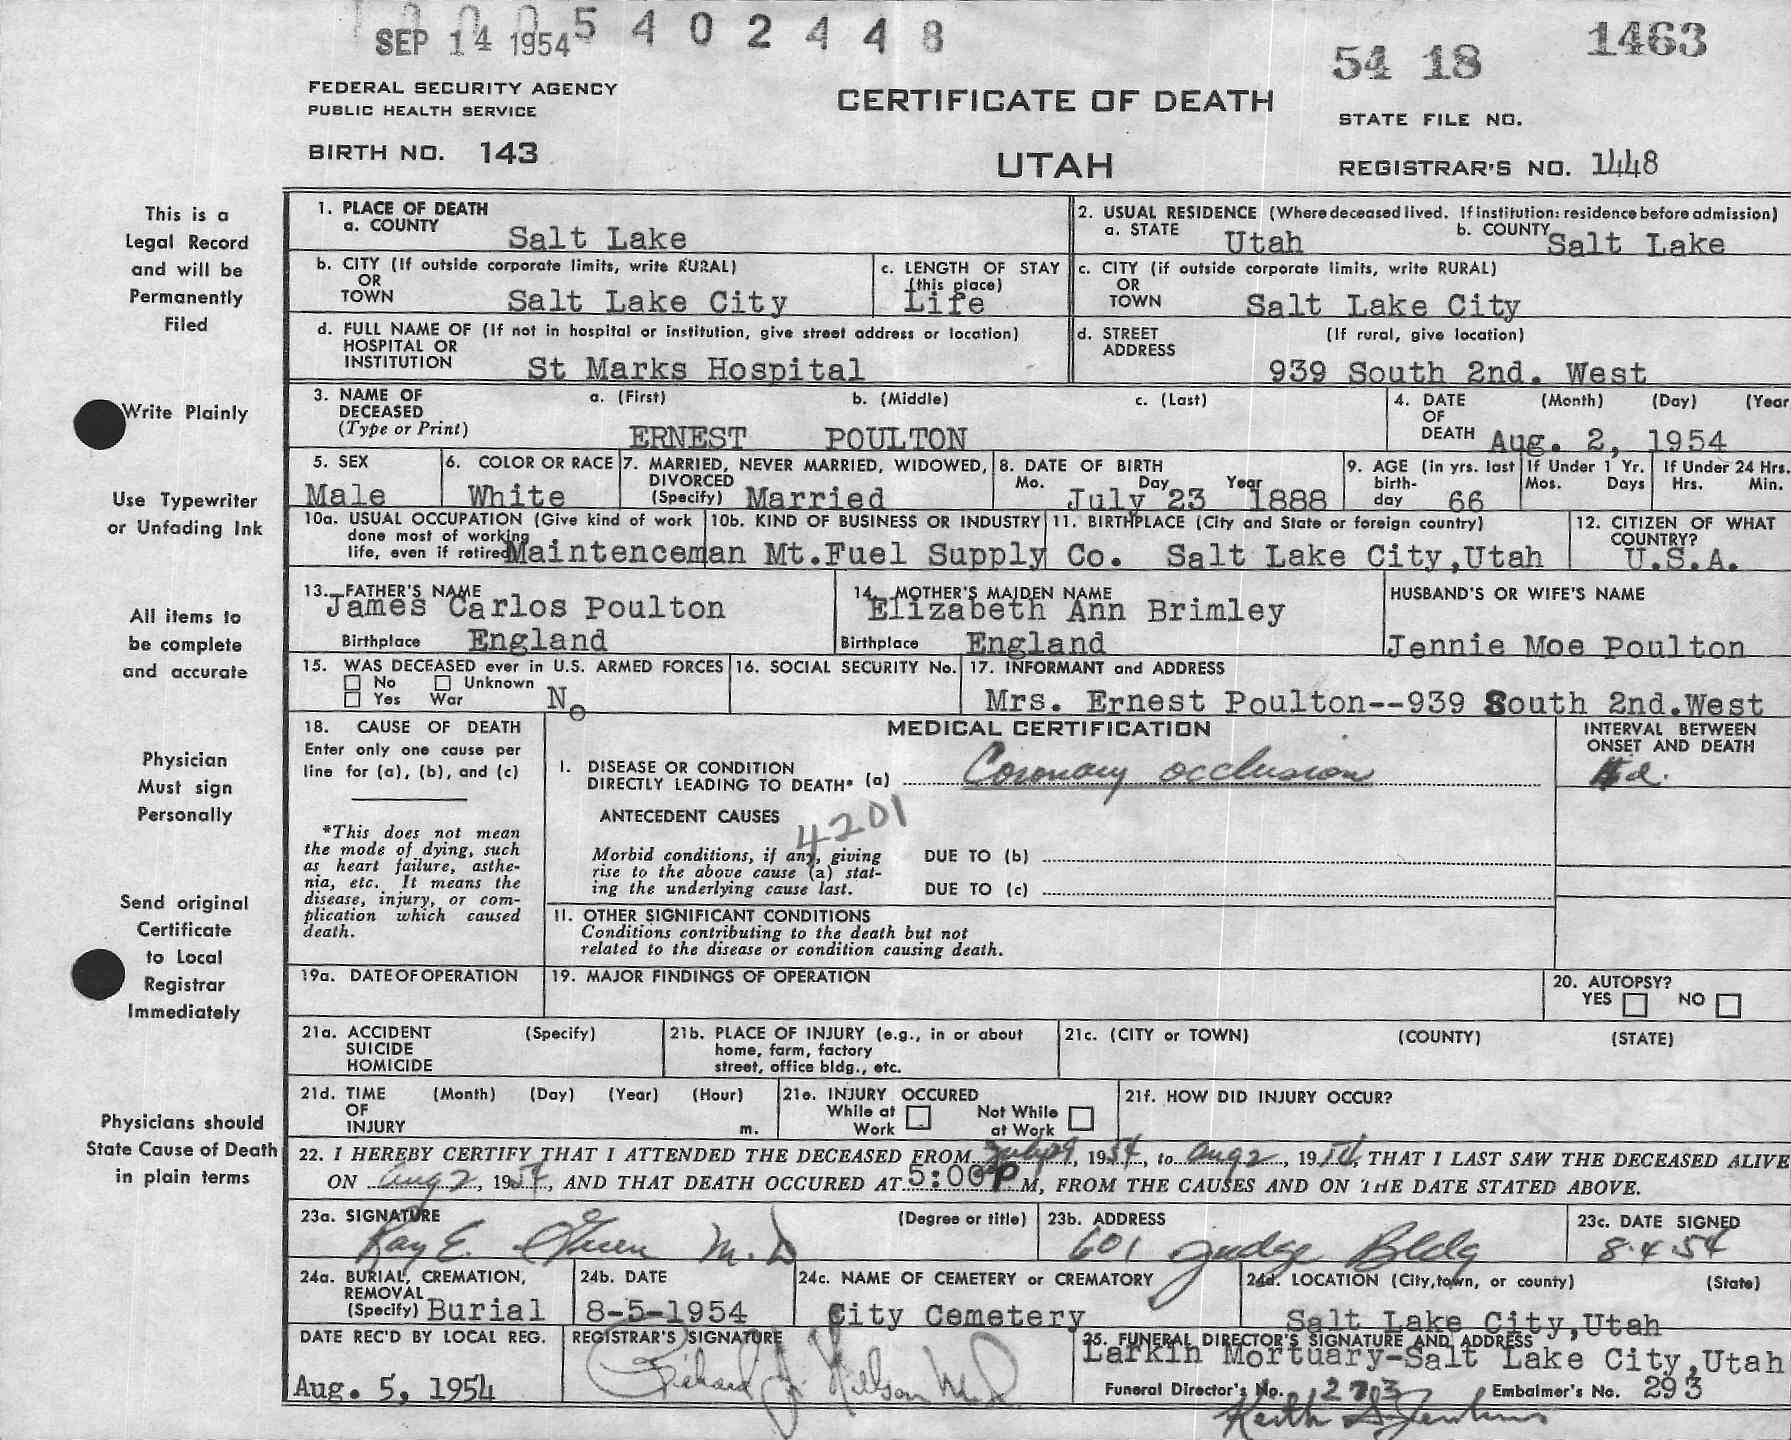 SEP 14 1954 5 4 0 2 4 4 8
54 18 1463
FEDERAL SECURITY AGENCY
PUBLIC HEALTH SERVICE
CERTIFICATE OF DEATH
STATE FILE NO.
BIRTH NO. 143
UTAH
REGISTRAR'S NO. 1448
This is a
Legal Record
and will be
Permanently
Filed
Write Plainly
Use Typewriter
or Unfading Ink
All items to
be complete
and accurate
Physician
Must sign
Personally
Send original
Certificate
to Local
Registrar
Immediately
Physicians should
State Cause of Death
in plain terms
1. PLACE OF DEATH
a. COUNTY Salt Lake
2. USUAL RESIDENCE (Where deceased lived. If institution: residence before admission)
a. STATE Utah b. COUNTY Salt Lake
b. CITY (If outside corporate limits, write RURAL)
OR
TOWN Salt Lake City
c. LENGTH OF STAY
(this place)
Life
c. CITY (if outside corporate limits, write RURAL)
OR
TOWN Salt Lake City
d. FULL NAME OF (If not in hospital or institution, give street address or location)
HOSPITAL OR
INSTITUTION St Marks Hospital
d. STREET (If rural, give location)
ADDRESS
939 South 2nd. West
3. NAME OF a. (First) b. (Middle) c. (Last)
DECEASED
(Type or Print) ERNEST POULTON
4. DATE (Month) (Day) (Year
OF
DEATH Aug. 2, 1954
5. SEX
Male
6. COLOR OR RACE
White
7. MARRIED, NEVER MARRIED, WIDOWED,
DIVORCED
(Specify) Married
8. DATE OF BIRTH
Mo. Day Year
July 23 1888
9. AGE (in yrs. last
birth-
day 66
If Under 1 Yr.
Mos. Days
If Under 24 Hrs.
Hrs. Min.
10a. USUAL OCCUPATION (Give kind of work
done most of working
life, even if retired Maintenceman
10b. KIND OF BUSINESS OR INDUSTRY
Mt.Fuel Supply Co.
11. BIRTHPLACE (City and State or foreign country)
Salt Lake City,Utah
12. CITIZEN OF WHAT
COUNTRY?
U.S.A.
13. FATHER'S NAME
James Carlos Poulton
Birthplace England
14. MOTHER'S MAIDEN NAME
Elizabeth Ann Brimley
Birthplace England
HUSBAND'S OR WIFE'S NAME
Jennie Moe Poulton
15. WAS DECEASED ever in U.S. ARMED FORCES
No Unknown
Yes War No
16. SOCIAL SECURITY No.
17. INFORMANT and ADDRESS
Mrs. Ernest Poulton--939 South 2nd.West
18. CAUSE OF DEATH
Enter only one cause per
line for (a), (b), and (c)
*This does not mean
the mode of dying, such
as heart failure, asthe-
nia, etc. It means the
disease, injury, or com-
plication which caused
death.
MEDICAL CERTIFICATION
INTERVAL BETWEEN
ONSET AND DEATH
I. DISEASE OR CONDITION
DIRECTLY LEADING TO DEATH* (a) Coronary occlusion d.
ANTECEDENT CAUSES
4201
Morbid conditions, if any, giving
rise to the above cause (a) stat-
ing the underlying cause last.
DUE TO (b)
DUE TO (c)
II. OTHER SIGNIFICANT CONDITIONS
Conditions contributing to the death but not
related to the disease or condition causing death.
19a. DATE OF OPERATION
19. MAJOR FINDINGS OF OPERATION
20. AUTOPSY?
YES NO
21a. ACCIDENT (Specify)
SUICIDE
HOMICIDE
21b. PLACE OF INJURY (e.g., in or about
home, farm, factory
street, office bldg., etc.
21c. (CITY or TOWN) (COUNTY) (STATE)
21d. TIME (Month) (Day) (Year) (Hour)
OF
INJURY m.
21e. INJURY OCCURED
While at Not While
Work at Work
21f. HOW DID INJURY OCCUR?
22. I HEREBY CERTIFY THAT I ATTENDED THE DECEASED FROM July 29, 1954, to Aug 2, 1954, THAT I LAST SAW THE DECEASED ALIVE
ON Aug 2, 1954, AND THAT DEATH OCCURED AT 5:00 P M, FROM THE CAUSES AND ON THE DATE STATED ABOVE.
23a. SIGNATURE (Degree or title)
Ray E. M.D
23b. ADDRESS
601 Judge Bldg
23c. DATE SIGNED
8.4.54
24a. BURIAL, CREMATION,
REMOVAL
(Specify) Burial
24b. DATE
8-5-1954
24c. NAME OF CEMETERY or CREMATORY
City Cemetery
24d. LOCATION (City, town, or county) (State)
Salt Lake City,Utah
DATE REC'D BY LOCAL REG.
Aug. 5, 1954
REGISTRAR'S SIGNATURE
Richard J. Nelson M.D.
25. FUNERAL DIRECTOR'S SIGNATURE AND ADDRESS
Larkin Mortuary-Salt Lake City,Utah
Funeral Director's No. 273 Embalmer's No. 293
Keith S. Jenkins